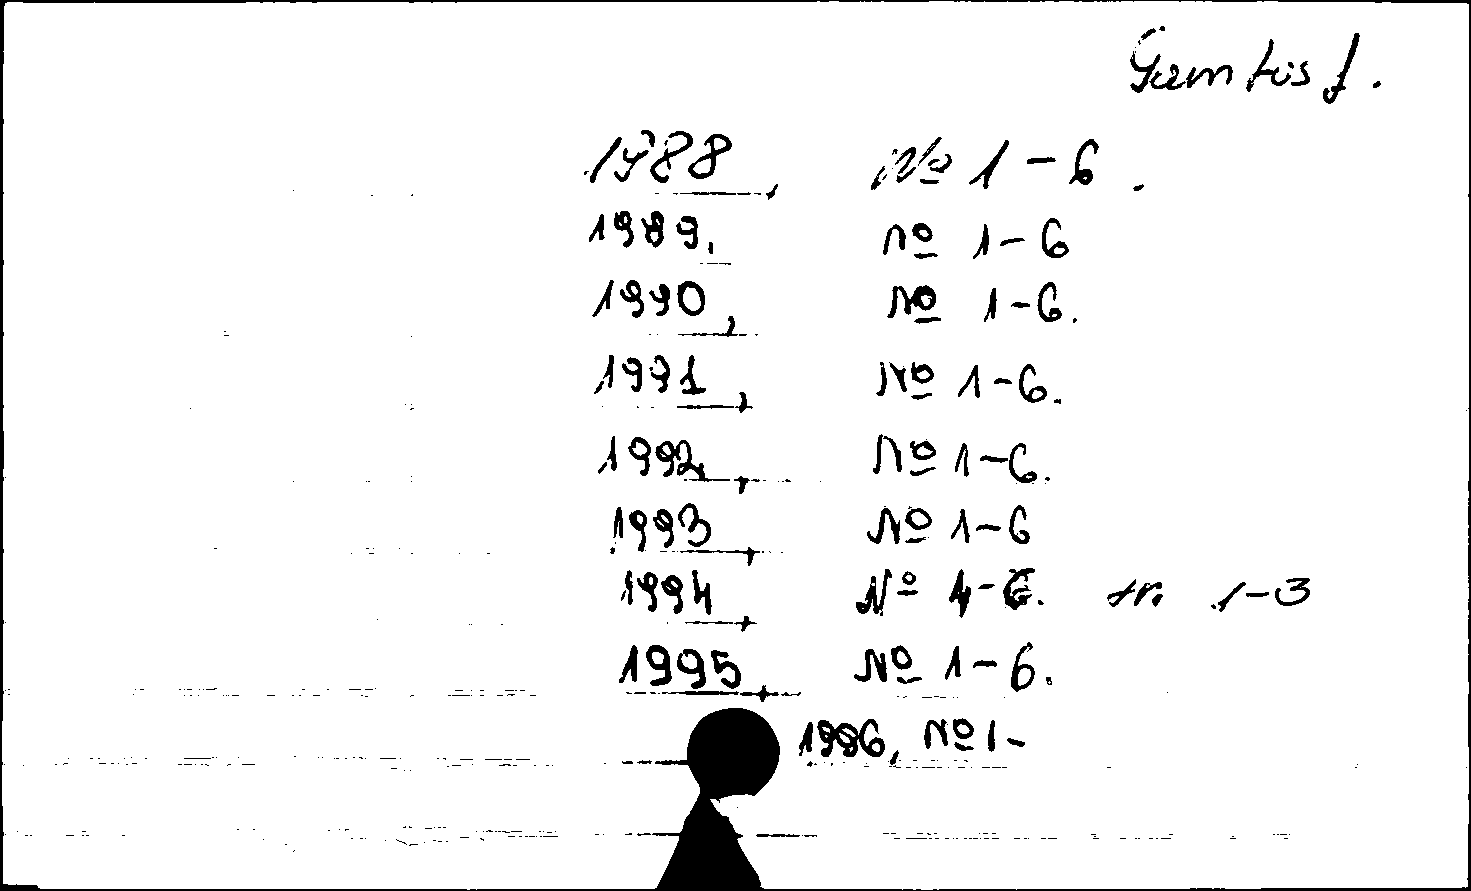 Gamtos f.
1988, № 1-6.
1989, № 1-6
1990, № 1-6.
1991, № 1-6.
1992, № 1-6.
1993, № 1-6
1994, № 4-6. nr. 1-3
1995, № 1-6.
1996, № 1-